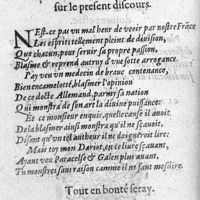 sur le present discours.
N'Est-ce pas vn mal heur de veoir par nostre Frãce
Les esprits tellement pleins de diuision,
Que chacun, pour seruir sa propre passion,
Blasme & reprend autruy d'vne sotte arrogance.
I'ay veu vn medecin de braue contenance,
Bien encamelotté, blasmer l'opinion
De ce docte Allemand, parmy sa nation
Qui monstra de son art la diuine puissance:
Et ce monsieur enquis, quelle cause il auoit,
De le blasmer ainsi monstra qu'il ne sçauoit,
Disant qu'vn tel autheur il ne daigneroit lire:
Mais toy mon Dariot, en ce liure sçauant,
Ayant veu Paracelse & Galen plus auant,
Tu monstres sans raison comme il ne faut mesdire.
Tout en bonté seray.